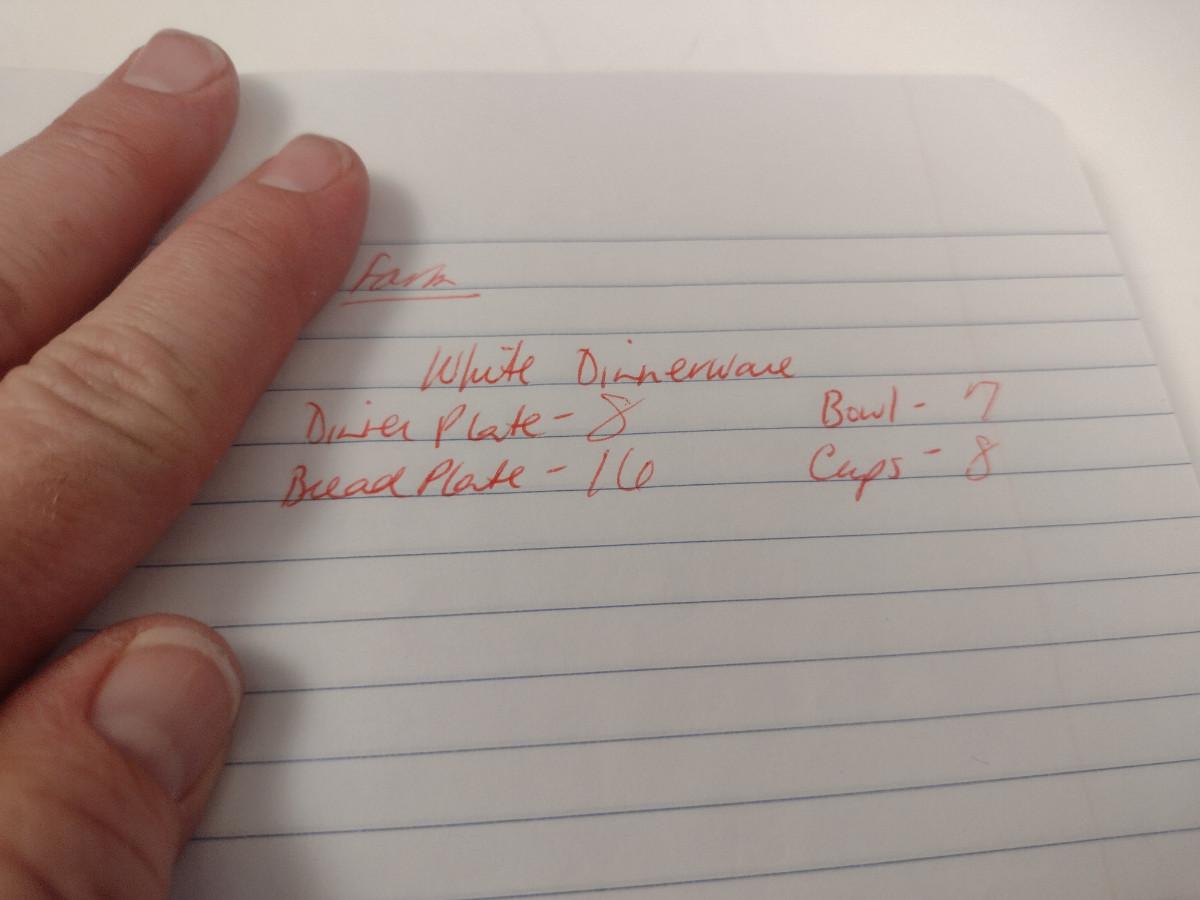 Farm
White Dinnerware
Dinner Plate - 8 Bowl - 7
Bread Plate - 16 Cups - 8